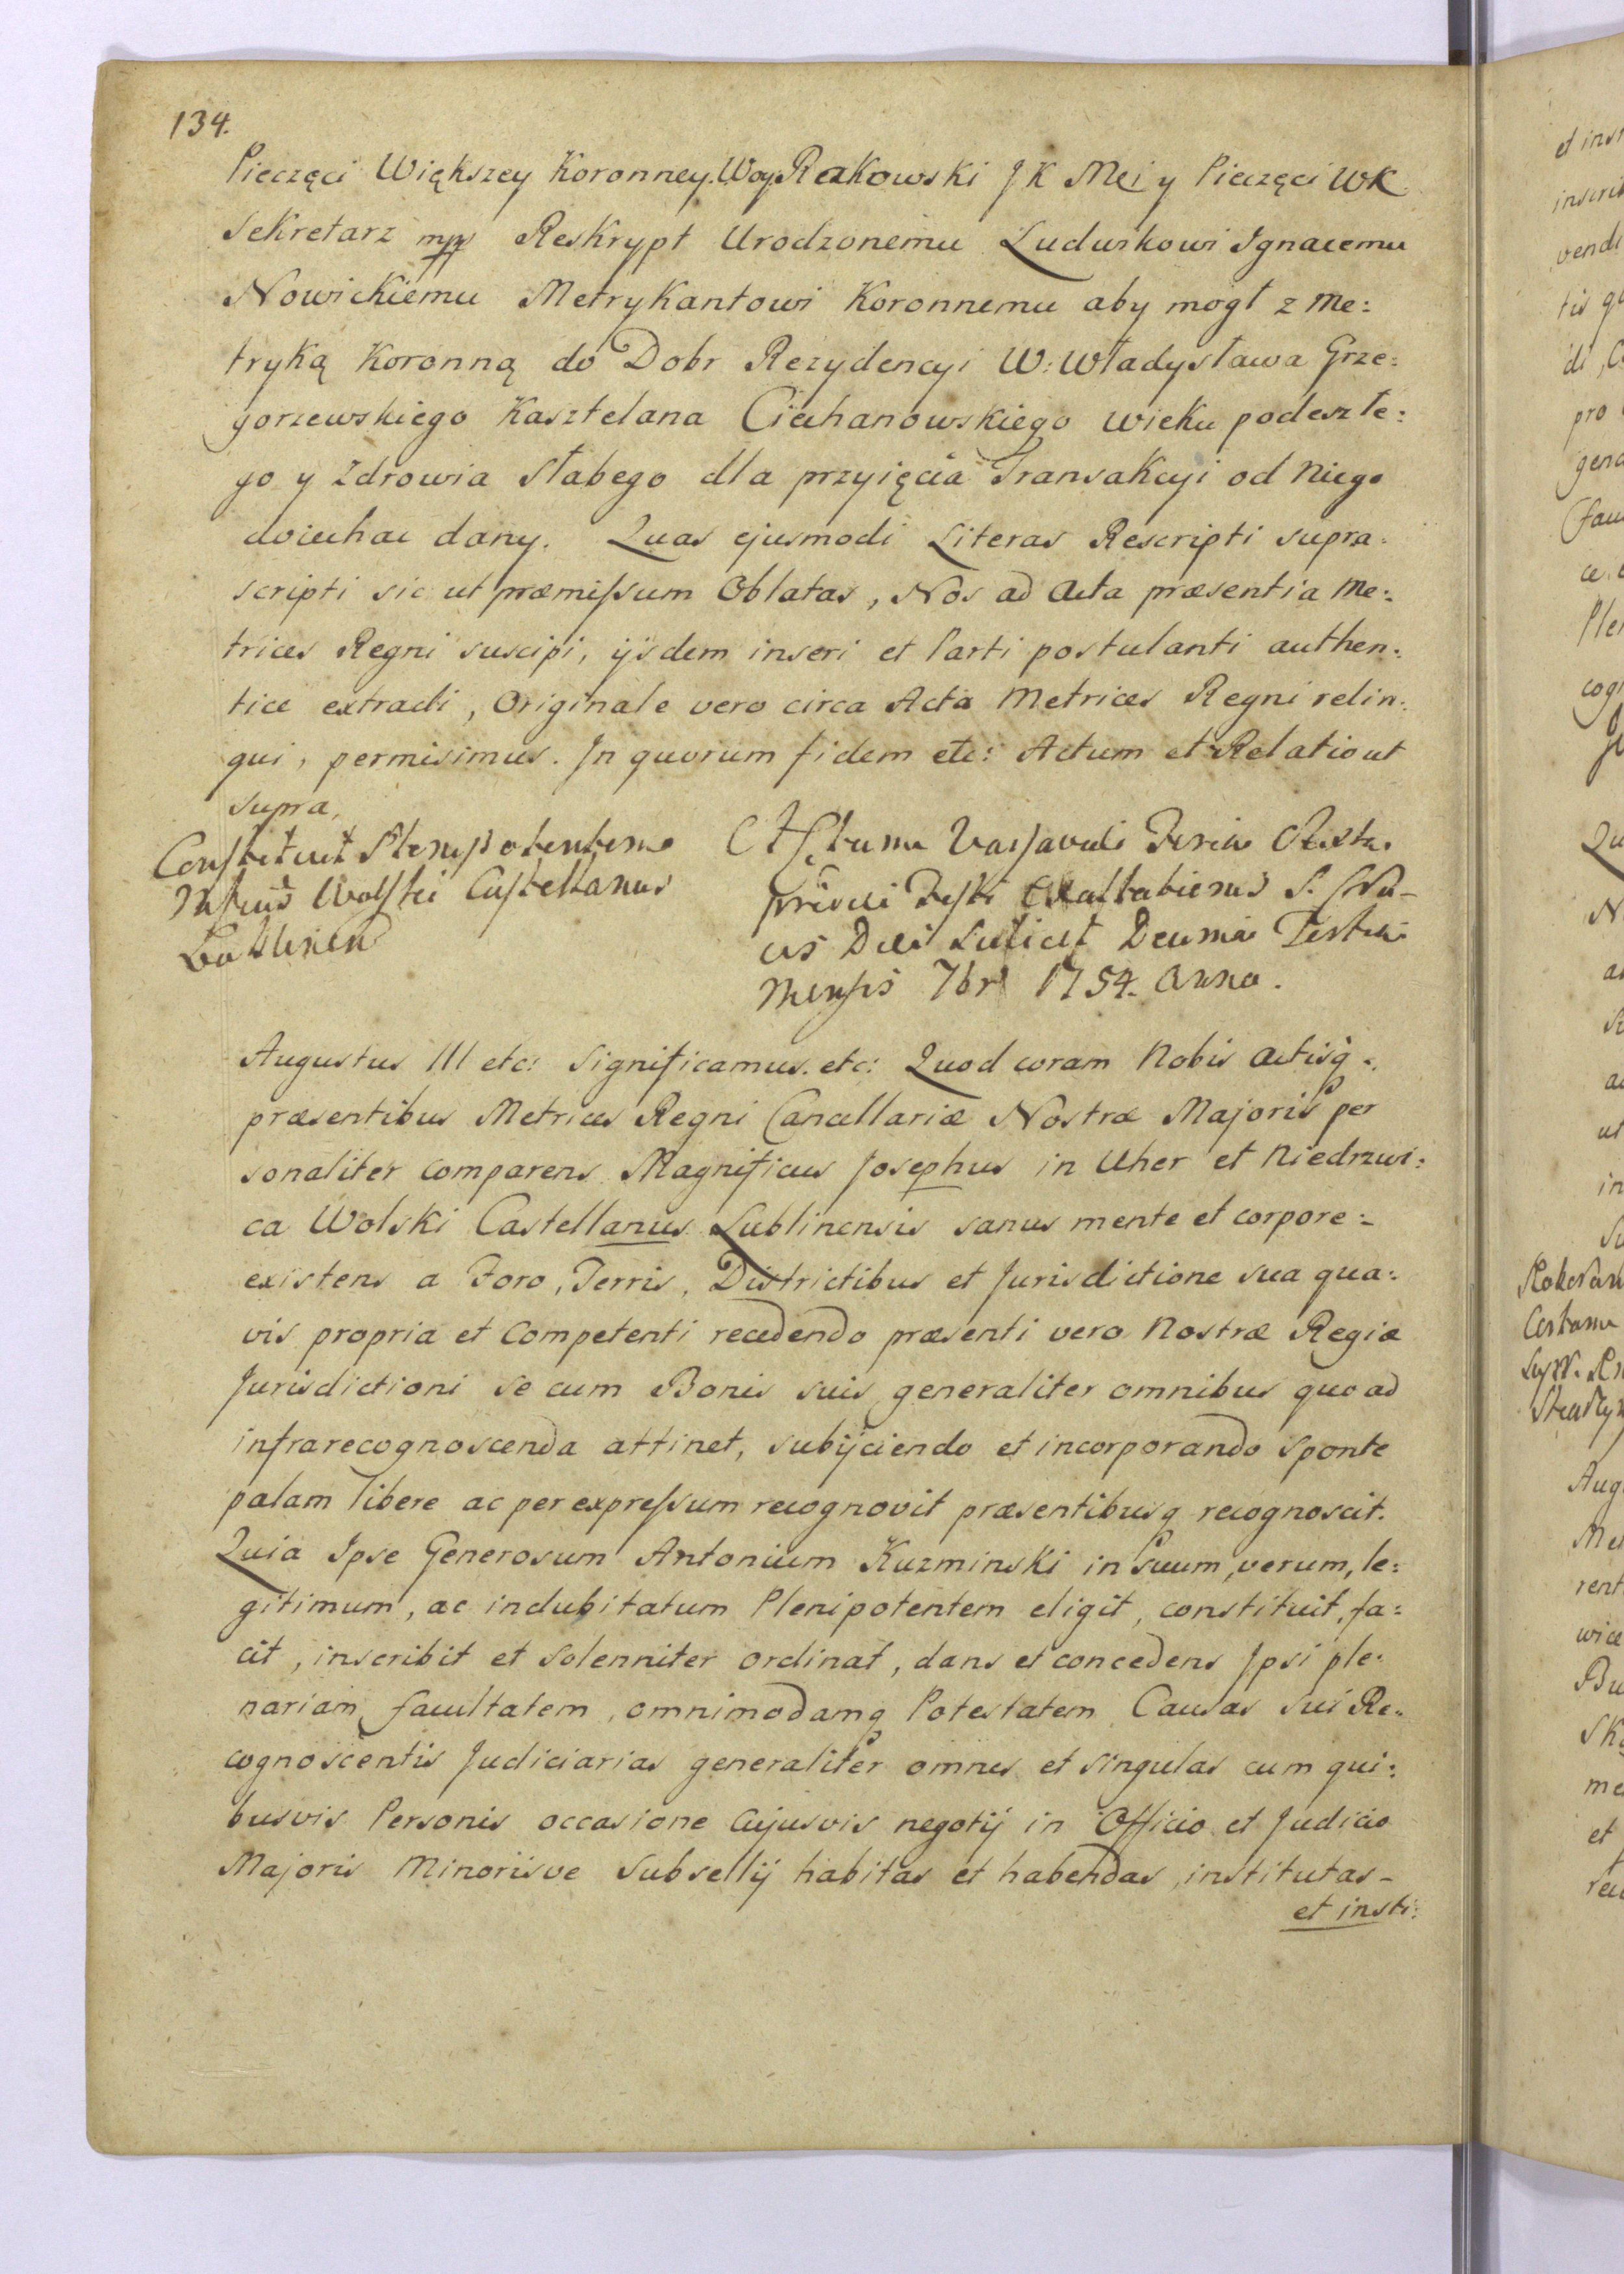 134.
Pieczęci Większey Koronney. Woy Rakowski J K Mci y Pieczęci WK
Sekretarz mpp Reskrypt Urodzonemu Ludwikowi Ignacemu
Nowickiemu Metrykantowi Koronnemu aby mogł z Me:
tryką Koronną do Dobr Rezydencyi W: Władysława Grze:
gorzewskiego Kasztelana Ciechanowskiego wieku podeszłe:
go y Zdrowia Słabego dla przyięcia Transakcyi od Niego
doiechac dany. Quas ejusmodi Literas Rescripti supra:
scripti sic ut præmissum Oblatas, Nos ad Acta præsentia Me:
trices Regni suscipi, ijsdem inseri et Parti postulanti authen:
tice extradi, Originale vero circa Acta Metrices Regni relin:
qui, permisimus. In quorum fidem etc: Actum et Relatio ut
supra,
Constituit Plenipotentem
Mcus Wolski Castellanus
Lublinen
Actum Varsaviæ Feria Sexta
pridie Festi Exaltationis S. Cru-
cis Dni Scilicet Decima Tertia
Mensis 7br 1754. Anno.
Augustus III etc: Significamus. etc: Quod coram Nobis Actisq
præsentibus Metrices Regni Cancellariæ Nostræ Majoris per
sonaliter comparens Magnificus Josephus in Uher et Niedrzwi:
ca Wolski Castellanus Lublinensis sanus mente et corpore:
existens a Foro, Terris, Districtibus et Jurisdictione sua qua:
vis propria et Competenti recedendo præsenti vero Nostræ Regiæ
Jurisdictioni se cum Bonis suis generaliter omnibus quo ad
infrarecognoscenda attinet, subijciendo et incorporando sponte
palam libere ac per expressum recognovit præsentibusq recognoscit.
Quia Ipse Generosum Antonium Kuzminski in Suum, verum, le:
gitimum, ac indubitatum Plenipotentem eligit, constituit, fa:
cit, inscribit et solenniter ordinat, dans et concedens Ipsi ple:
nariam facultatem, omnimodamq Potestatem Causas sui Re:
cognoscentis Judiciarias generaliter omnes et singulas cum qui:
busvis Personis occasione cujusvis negotij in Officio et Judicio
Majoris Minorisve Subsellij habitas et habendas, institutas-
et insti: